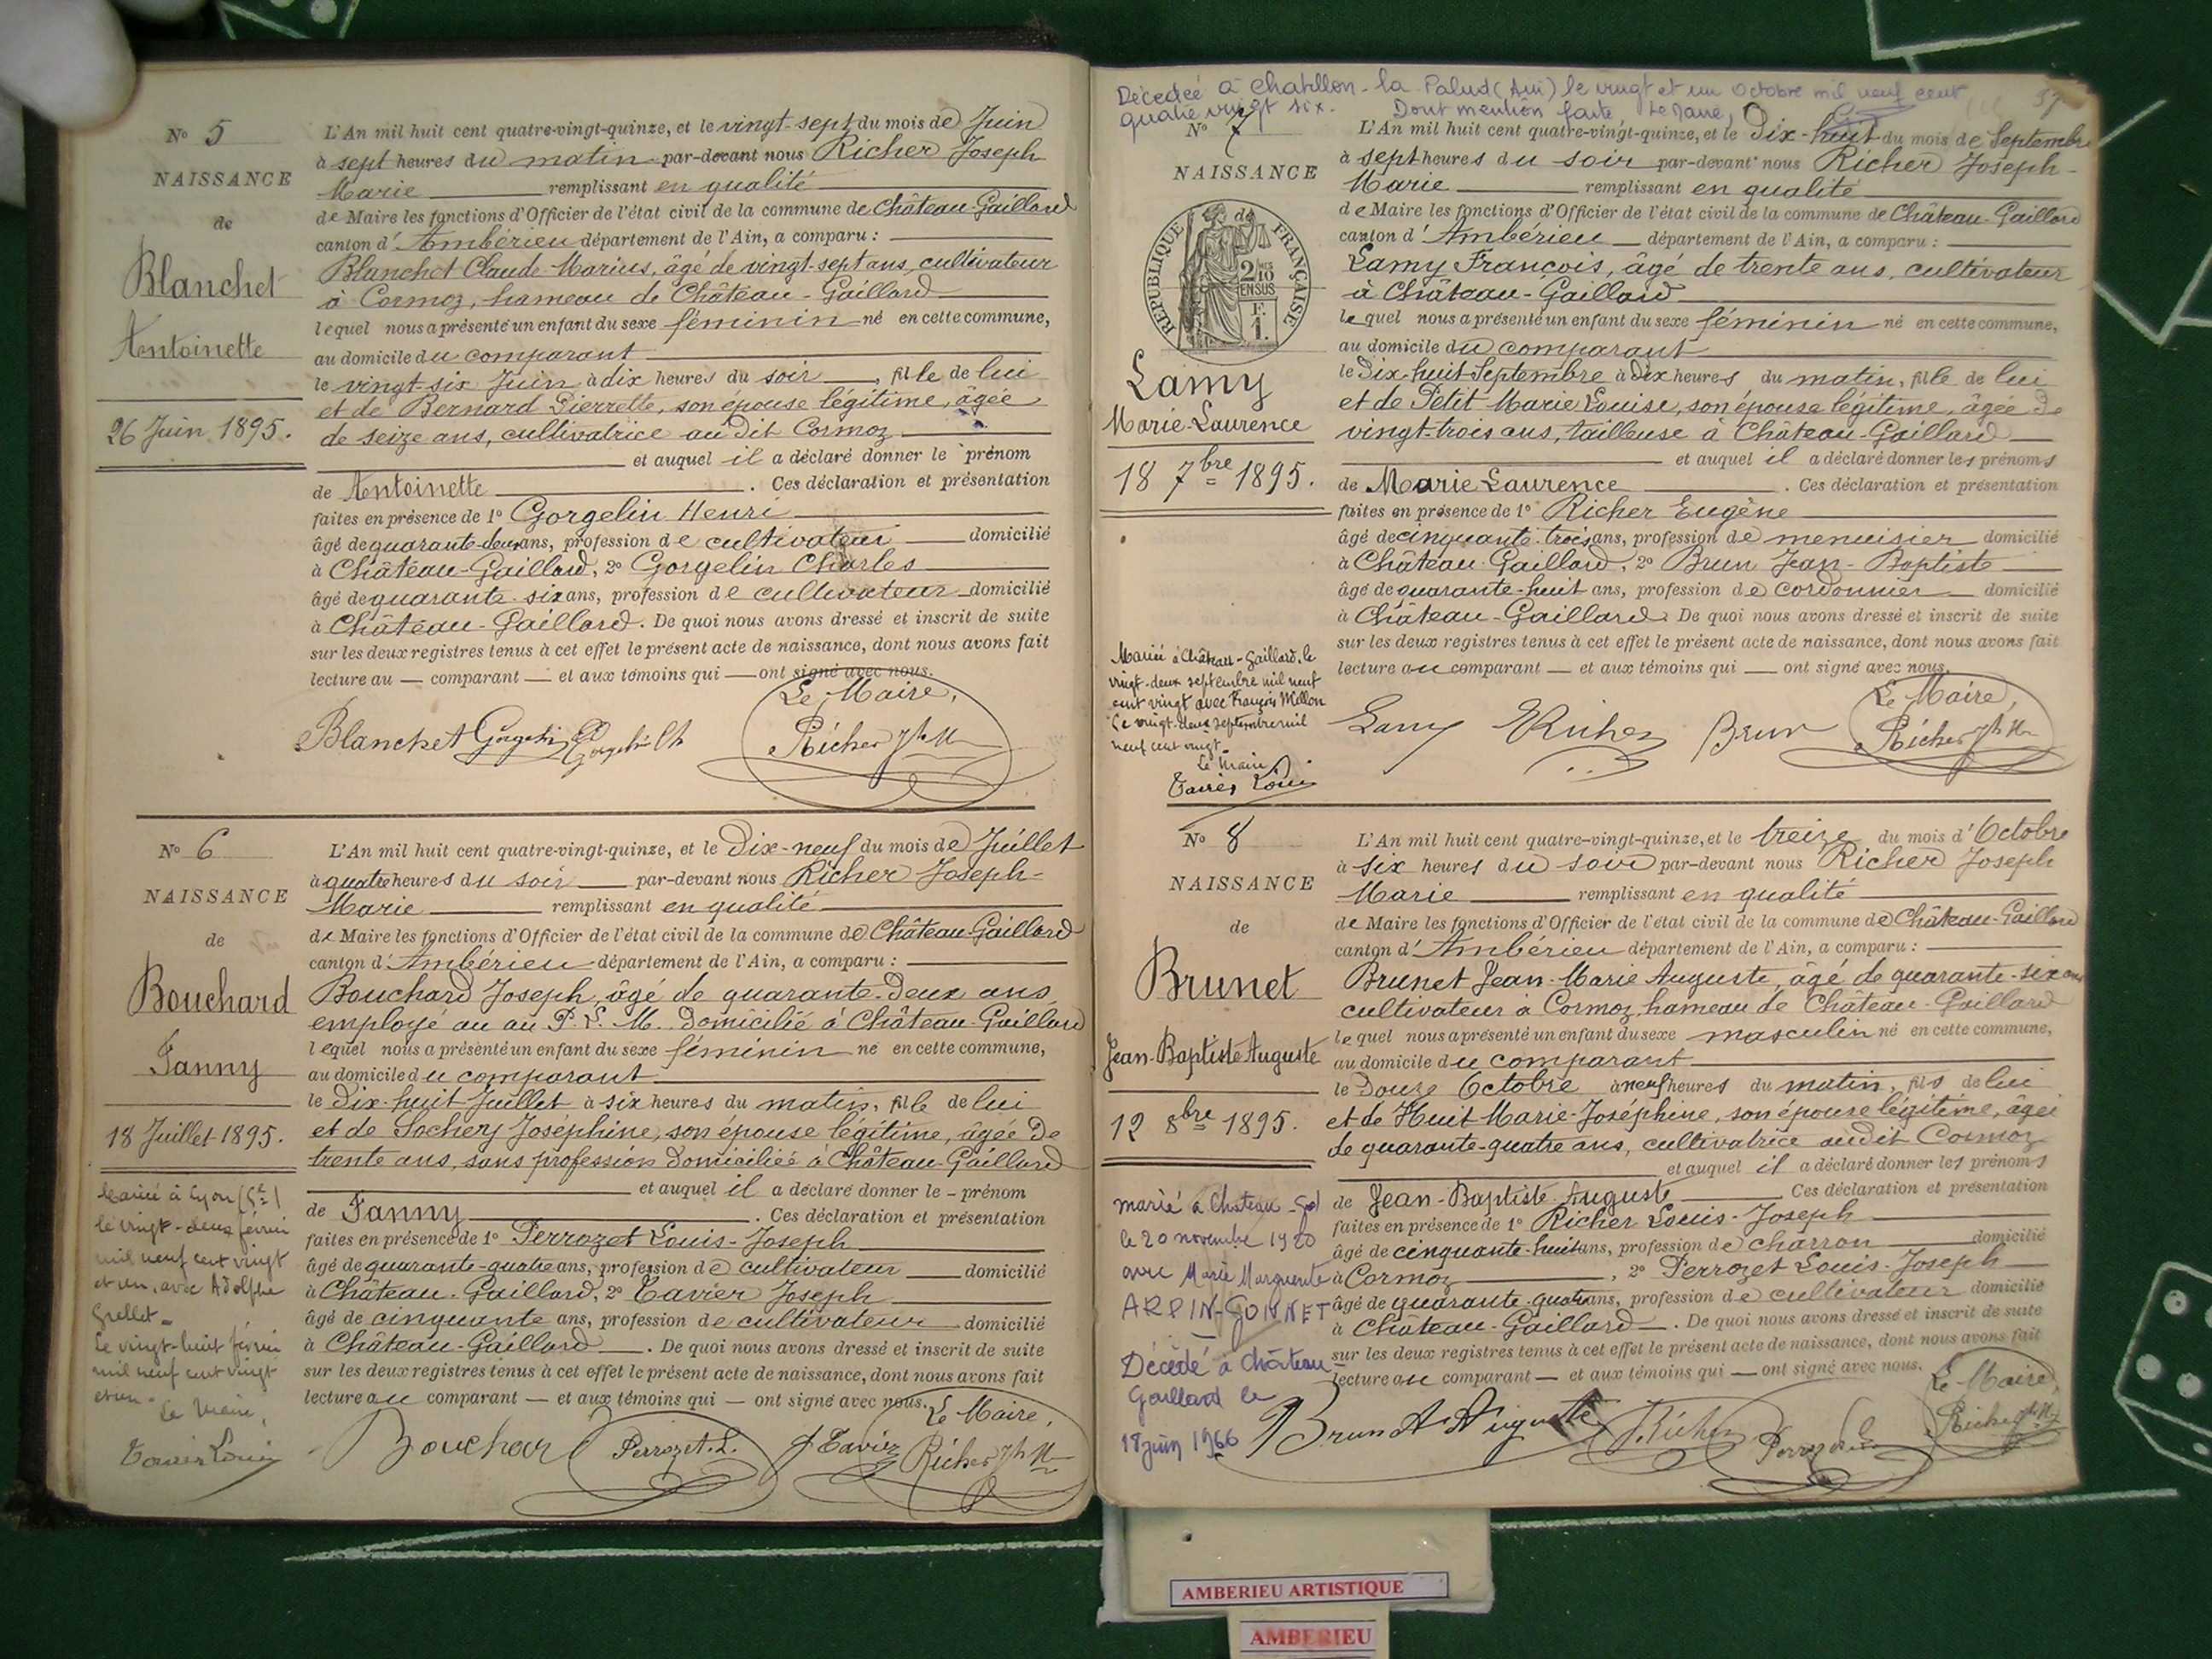 N° 5
NAISSANCE
de
Blanchet
Antoinette
26 Juin 1895.
L'An mil huit cent quatre-vingt-quinze, et le vingt-sept du mois de Juin
à sept heures du matin par-devant nous Richer Joseph
Marie remplissant en qualité
de Maire les fonctions d'Officier de l'état civil de la commune de Château-Gaillard
canton d'Ambérieu département de l'Ain, a comparu :
Blanchet Claude-Marius, âgé de vingt-sept ans, cultivateur
à Cormoz, hameau de Château-Gaillard
lequel nous a présenté un enfant du sexe féminin né en cette commune,
au domicile du comparant
le vingt-six Juin à dix heures du soir, fille de lui
et de Bernard Pierrette, son épouse légitime, âgée
de seize ans, cultivatrice au dit Cormoz
et auquel il a déclaré donner le prénom
de Antoinette. Ces déclaration et présentation
faites en présence de 1° Gorgelin Henri
âgé de quarante-deux ans, profession de cultivateur domicilié
à Château-Gaillard, 2° Gorgelin Charles
âgé de quarante-six ans, profession de cultivateur domicilié
à Château-Gaillard. De quoi nous avons dressé et inscrit de suite
sur les deux registres tenus à cet effet le présent acte de naissance, dont nous avons fait
lecture au — comparant — et aux témoins qui — ont signé avec nous.
Le Maire,
Blanchet Richer Jh M
N° 6
NAISSANCE
de
Bouchard
Fanny
18 Juillet 1895.
Mariée à Lyon
le vingt-deux février
mil neuf cent vingt
et un, avec Adolphe
Grellet.
Le vingt-huit février
mil neuf cent vingt
et un.
Le Maire,
Tavier Louis
L'An mil huit cent quatre-vingt-quinze, et le Dix-neuf du mois de Juillet
à quatre heures du soir par-devant nous Richer Joseph-
Marie remplissant en qualité
de Maire les fonctions d'Officier de l'état civil de la commune de Château-Gaillard
canton d'Ambérieu département de l'Ain, a comparu :
Bouchard Joseph, âgé de quarante-deux ans,
employé au au P. L. M. domicilié à Château-Gaillard
lequel nous a présenté un enfant du sexe féminin né en cette commune,
au domicile du comparant
le Dix-huit Juillet à six heures du matin, fille de lui
et de Sochey Joséphine, son épouse légitime, âgée de
trente ans, sans profession domiciliée à Château-Gaillard
et auquel il a déclaré donner le - prénom
de Fanny. Ces déclaration et présentation
faites en présence de 1° Perrozet Louis-Joseph
âgé de quarante-quatre ans, profession de cultivateur domicilié
à Château-Gaillard, 2° Tavier Joseph
âgé de cinquante ans, profession de cultivateur domicilié
à Château-Gaillard. De quoi nous avons dressé et inscrit de suite
sur les deux registres tenus à cet effet le présent acte de naissance, dont nous avons fait
lecture au comparant — et aux témoins qui — ont signé avec nous.
Le Maire,
Bouchar Perrozet L. J Tavier Richer Jh M
Décédée à Chatillon-la-Palud (Ain) le vingt et un Octobre mil neuf cent
quatre vingt six. Dont mention faite Le Maire,
37
N° 7
NAISSANCE
de
RÉPUBLIQUE FRANÇAISE
2/10 EN SUS
F.
1.
Lamy
Marie-Laurence
18 7bre 1895.
Mariée à Château-Gaillard, le
vingt-deux septembre mil neuf
cent vingt avec François Millon
Le vingt-deux septembre mil
neuf cent vingt.
Le Maire
Tavier Louis
L'An mil huit cent quatre-vingt-quinze, et le Dix-huit du mois de Septembre
à sept heures du soir par-devant nous Richer Joseph-
Marie remplissant en qualité
de Maire les fonctions d'Officier de l'état civil de la commune de Château-Gaillard
canton d'Ambérieu département de l'Ain, a comparu :
Lamy François, âgé de trente ans, cultivateur
à Château-Gaillard
lequel nous a présenté un enfant du sexe féminin né en cette commune,
au domicile du comparant
le Dix-huit Septembre à dix heures du matin, fille de lui
et de Petit Marie Louise, son épouse légitime, âgée de
vingt-trois ans, tailleuse à Château-Gaillard
et auquel il a déclaré donner les prénoms
de Marie Laurence. Ces déclaration et présentation
faites en présence de 1° Richer Eugène
âgé de cinquante-trois ans, profession de menuisier domicilié
à Château-Gaillard, 2° Brun Jean-Baptiste
âgé de quarante-huit ans, profession de cordonnier domicilié
à Château-Gaillard. De quoi nous avons dressé et inscrit de suite
sur les deux registres tenus à cet effet le présent acte de naissance, dont nous avons fait
lecture au comparant — et aux témoins qui — ont signé avec nous.
Le Maire,
Lamy E Richer Brun Richer Jh M
N° 8
NAISSANCE
de
Brunet
Jean-Baptiste Auguste
12 8bre 1895.
marié à Chateau-Gd
le 20 novembre 1920
avec Marie Marguerite
ARPIN-GONNET
Décédé à Château-
Gaillard le
18 juin 1966
L'An mil huit cent quatre-vingt-quinze, et le treize du mois d'Octobre
à six heures du soir par-devant nous Richer Joseph
Marie remplissant en qualité
de Maire les fonctions d'Officier de l'état civil de la commune de Château-Gaillard
canton d'Ambérieu département de l'Ain, a comparu :
Brunet Jean-Marie Auguste, âgé de quarante-six ans
cultivateur à Cormoz, hameau de Château-Gaillard
lequel nous a présenté un enfant du sexe masculin né en cette commune,
au domicile du comparant
le Douze Octobre à neuf heures du matin, fils de lui
et de Huit Marie-Joséphine, son épouse légitime, âgée
de quarante-quatre ans, cultivatrice audit Cormoz
et auquel il a déclaré donner les prénoms
de Jean-Baptiste Auguste Ces déclaration et présentation
faites en présence de 1° Richer Louis-Joseph
âgé de cinquante-huit ans, profession de charron domicilié
à Cormoz, 2° Perrozet Louis-Joseph
âgé de quarante-quatre ans, profession de cultivateur domicilié
à Château-Gaillard. De quoi nous avons dressé et inscrit de suite
sur les deux registres tenus à cet effet le présent acte de naissance, dont nous avons fait
lecture au comparant — et aux témoins qui — ont signé avec nous.
Le Maire,
Brunet Auguste Richer Richer Jh M
AMBERIEU ARTISTIQUE
AMBERIEU